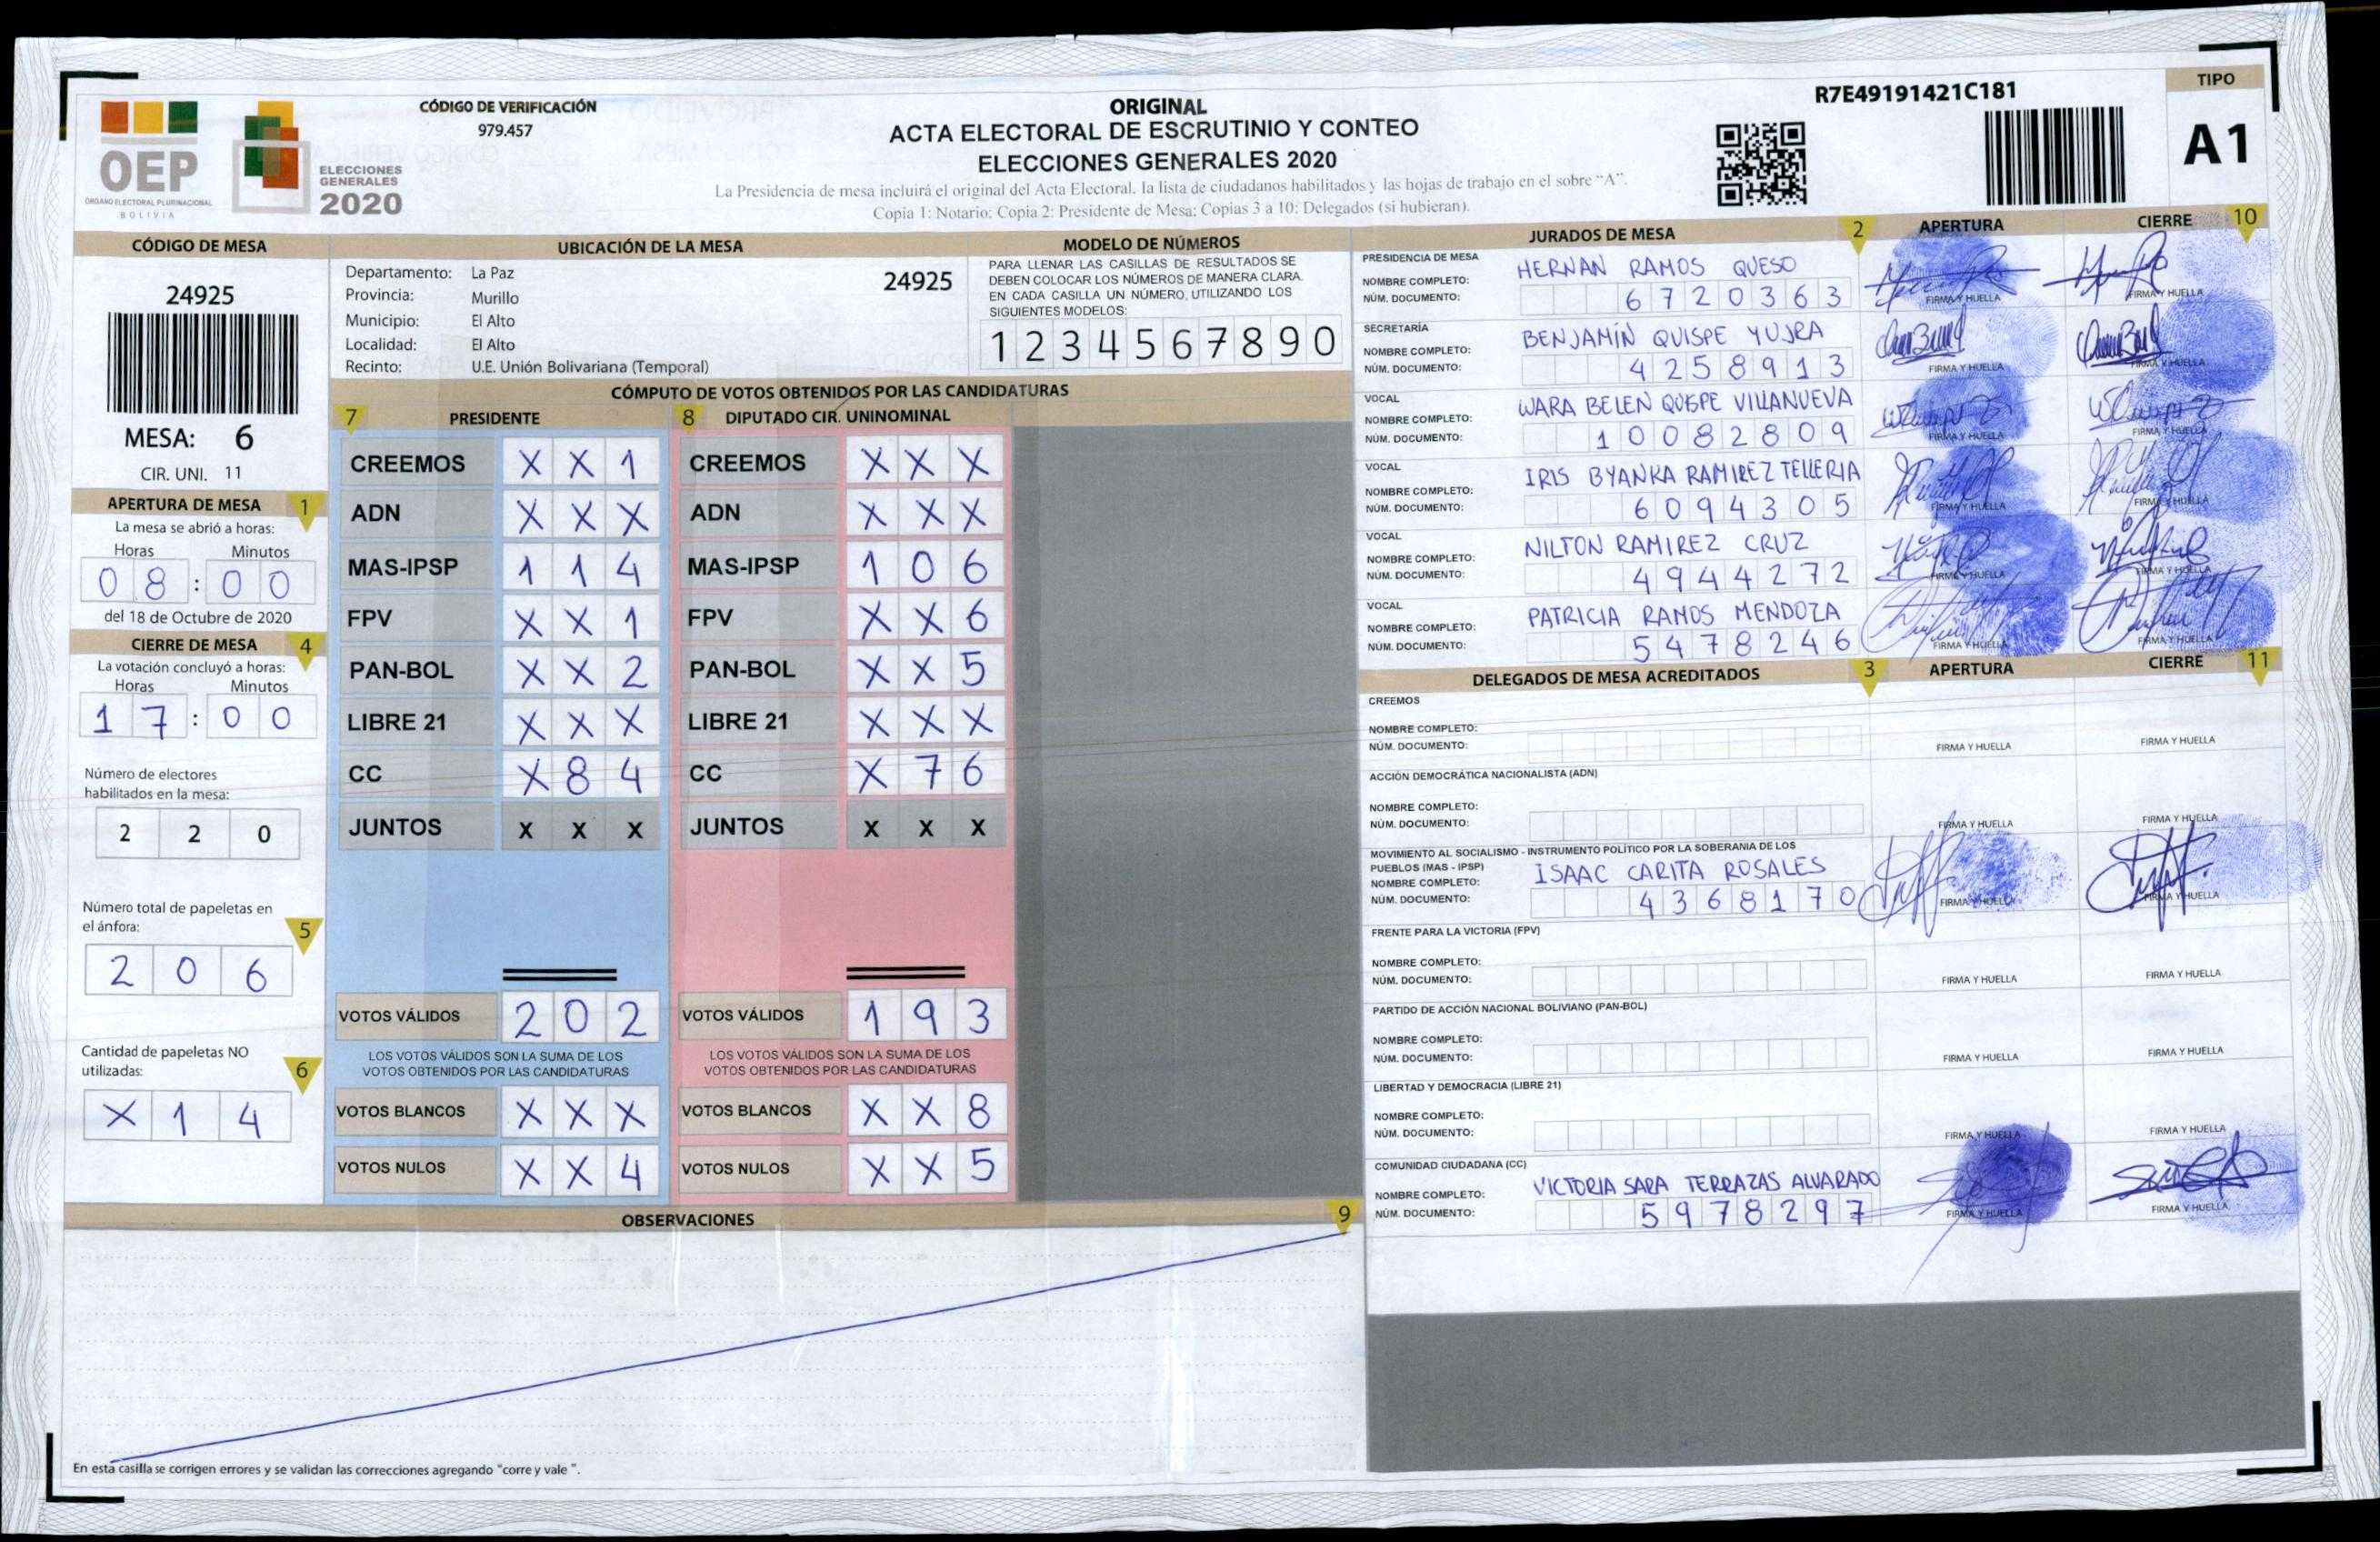 OEP
ÓRGANO ELECTORAL PLURINACIONAL
BOLIVIA
ELECCIONES
GENERALES
2020
CÓDIGO DE VERIFICACIÓN
979.457
ORIGINAL
ACTA ELECTORAL DE ESCRUTINIO Y CONTEO
ELECCIONES GENERALES 2020
La Presidencia de mesa incluirá el original del Acta Electoral, la lista de ciudadanos habilitados y las hojas de trabajo en el sobre "A".
Copia 1: Notario; Copia 2: Presidente de Mesa; Copias 3 a 10: Delegados (si hubieran).
R7E49191421C181
TIPO
A1
CÓDIGO DE MESA
24925
MESA: 6
CIR. UNI. 11
APERTURA DE MESA 1
La mesa se abrió a horas:
Horas Minutos
0 8 : 0 0
del 18 de Octubre de 2020
CIERRE DE MESA 4
La votación concluyó a horas:
Horas Minutos
1 7 : 0 0
Número de electores
habilitados en la mesa:
2 2 0
Número total de papeletas en
el ánfora: 5
2 0 6
Cantidad de papeletas NO
utilizadas: 6
X 1 4
UBICACIÓN DE LA MESA
Departamento: La Paz 24925
Provincia: Murillo
Municipio: El Alto
Localidad: El Alto
Recinto: U.E. Unión Bolivariana (Temporal)
MODELO DE NÚMEROS
PARA LLENAR LAS CASILLAS DE RESULTADOS SE
DEBEN COLOCAR LOS NÚMEROS DE MANERA CLARA.
EN CADA CASILLA UN NÚMERO, UTILIZANDO LOS
SIGUIENTES MODELOS:
1 2 3 4 5 6 7 8 9 0
CÓMPUTO DE VOTOS OBTENIDOS POR LAS CANDIDATURAS
7 PRESIDENTE 8 DIPUTADO CIR. UNINOMINAL
CREEMOS X X 1 CREEMOS X X X
ADN X X X ADN X X X
MAS-IPSP 1 1 4 MAS-IPSP 1 0 6
FPV X X 1 FPV X X 6
PAN-BOL X X 2 PAN-BOL X X 5
LIBRE 21 X X X LIBRE 21 X X X
CC X 8 4 CC X 7 6
JUNTOS X X X JUNTOS X X X
VOTOS VÁLIDOS 2 0 2 VOTOS VÁLIDOS 1 9 3
LOS VOTOS VÁLIDOS SON LA SUMA DE LOS LOS VOTOS VÁLIDOS SON LA SUMA DE LOS
VOTOS OBTENIDOS POR LAS CANDIDATURAS VOTOS OBTENIDOS POR LAS CANDIDATURAS
VOTOS BLANCOS X X X VOTOS BLANCOS X X 8
VOTOS NULOS X X 4 VOTOS NULOS X X 5
OBSERVACIONES 9
En esta casilla se corrigen errores y se validan las correcciones agregando "corre y vale ".
JURADOS DE MESA 2 APERTURA CIERRE 10
PRESIDENCIA DE MESA
NOMBRE COMPLETO: HERNAN RAMOS QUESO
NÚM. DOCUMENTO: 6 7 2 0 3 6 3 FIRMA Y HUELLA FIRMA Y HUELLA
SECRETARÍA
NOMBRE COMPLETO: BENJAMÍN QUISPE YUJRA
NÚM. DOCUMENTO: 4 2 5 8 9 1 3 FIRMA Y HUELLA FIRMA Y HUELLA
VOCAL
NOMBRE COMPLETO: WARA BELEN QUISPE VILLANUEVA
NÚM. DOCUMENTO: 1 0 0 8 2 8 0 9 FIRMA Y HUELLA FIRMA Y HUELLA
VOCAL
NOMBRE COMPLETO: IRIS BYANKA RAMIREZ TELLERIA
NÚM. DOCUMENTO: 6 0 9 4 3 0 5 FIRMA Y HUELLA FIRMA Y HUELLA
VOCAL
NOMBRE COMPLETO: NILTON RAMIREZ CRUZ
NÚM. DOCUMENTO: 4 9 4 4 2 7 2 FIRMA Y HUELLA FIRMA Y HUELLA
VOCAL
NOMBRE COMPLETO: PATRICIA RAMOS MENDOZA
NÚM. DOCUMENTO: 5 4 7 8 2 4 6 FIRMA Y HUELLA FIRMA Y HUELLA
DELEGADOS DE MESA ACREDITADOS 3 APERTURA CIERRE 11
CREEMOS
NOMBRE COMPLETO:
NÚM. DOCUMENTO: FIRMA Y HUELLA FIRMA Y HUELLA
ACCIÓN DEMOCRÁTICA NACIONALISTA (ADN)
NOMBRE COMPLETO:
NÚM. DOCUMENTO: FIRMA Y HUELLA FIRMA Y HUELLA
MOVIMIENTO AL SOCIALISMO - INSTRUMENTO POLÍTICO POR LA SOBERANIA DE LOS
PUEBLOS (MAS - IPSP)
NOMBRE COMPLETO: ISAAC CARITA ROSALES
NÚM. DOCUMENTO: 4 3 6 8 1 7 0 FIRMA Y HUELLA FIRMA Y HUELLA
FRENTE PARA LA VICTORIA (FPV)
NOMBRE COMPLETO:
NÚM. DOCUMENTO: FIRMA Y HUELLA FIRMA Y HUELLA
PARTIDO DE ACCIÓN NACIONAL BOLIVIANO (PAN-BOL)
NOMBRE COMPLETO:
NÚM. DOCUMENTO: FIRMA Y HUELLA FIRMA Y HUELLA
LIBERTAD Y DEMOCRACIA (LIBRE 21)
NOMBRE COMPLETO:
NÚM. DOCUMENTO: FIRMA Y HUELLA FIRMA Y HUELLA
COMUNIDAD CIUDADANA (CC)
NOMBRE COMPLETO: VICTORIA SARA TERRAZAS ALVARADO
NÚM. DOCUMENTO: 5 9 7 8 2 9 7 FIRMA Y HUELLA FIRMA Y HUELLA